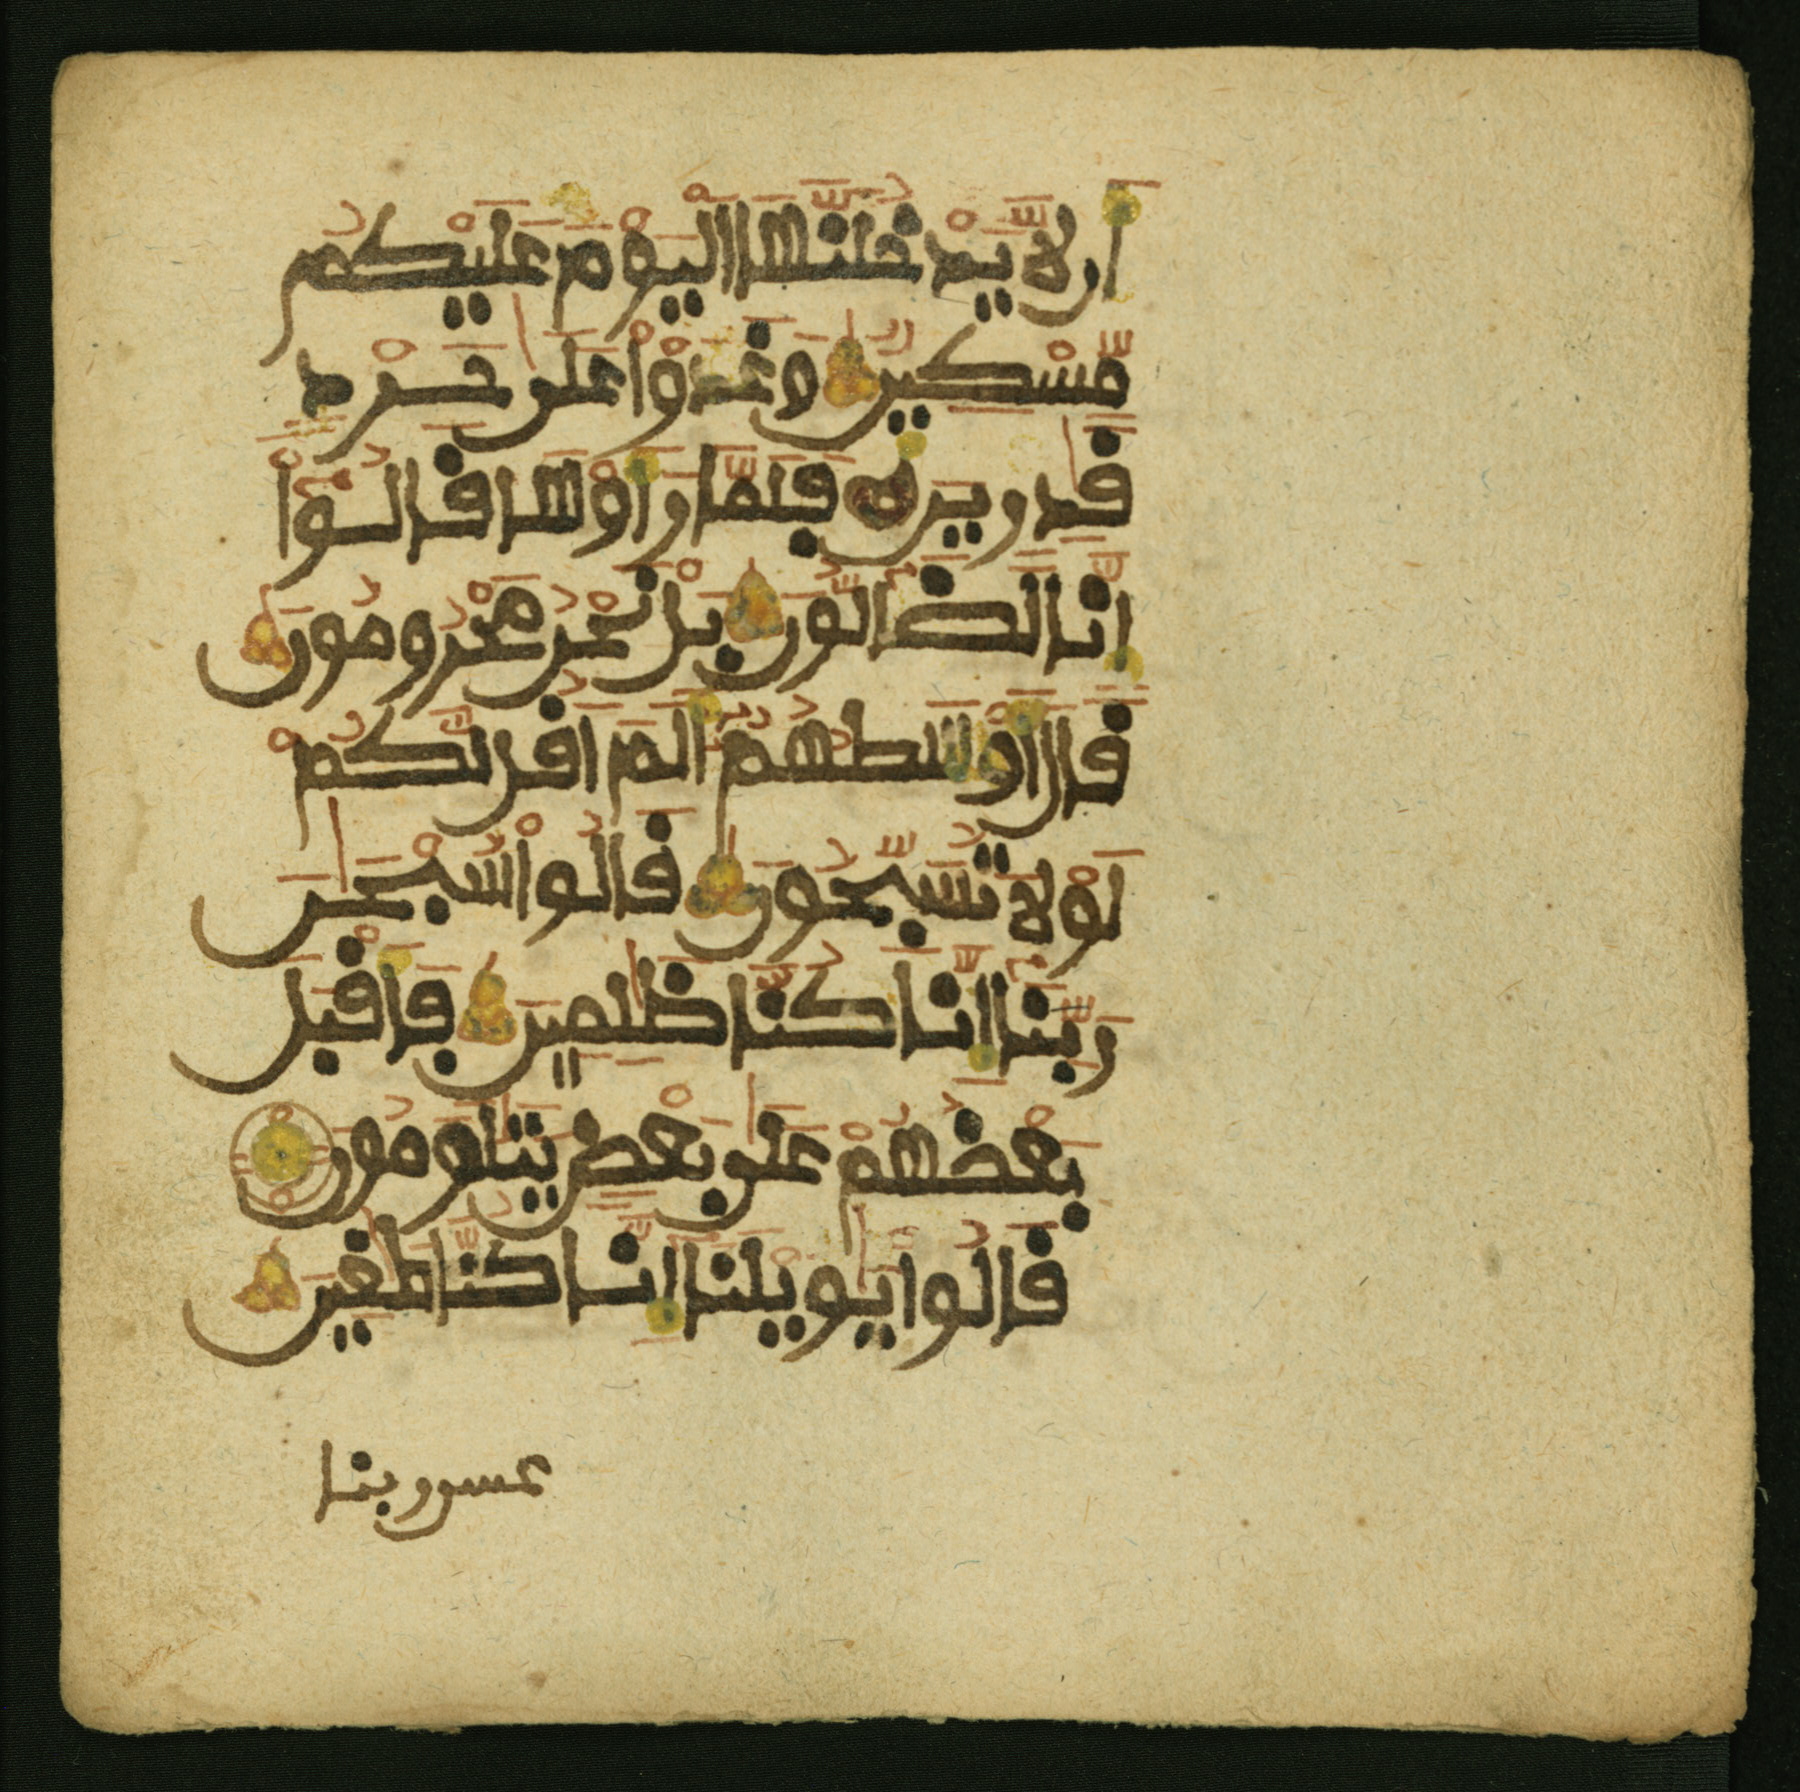 اَن لَّا يَدْخُلَنَّهَا الْيَوْمَ عَلَيْكُم
مِّسْكِينٌ وَغَدَوْا عَلَىٰ حَرْدٍ
قَٰدِرِينَ فَلَمَّا رَأَوْهَا قَالُوٓاْ
إِنَّا لَضَآلُّونَ بَلْ نَحْنُ مَحْرُومُونَ
قَالَ أَوْسَطُهُمُۥٓ أَلَمَ اَقُل لَّكُمْ
لَوْلَا تُسَبِّحُونَ قَالُواْ سُبْحَٰنَ
رَبِّنَآ إِنَّا كُنَّا ظَٰلِمِينَ فَأَقْبَلَ
بَعْضُهُمْ عَلَىٰ بَعْضٍ يَتَلَٰوَمُونَ
قَالُواْ يَٰوَيْلَنَآ إِنَّا كُنَّا طَٰغِينَ
عسى ربنا